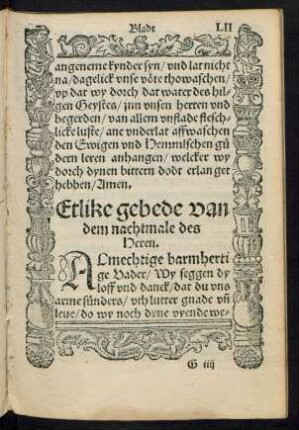 Bladt LII
angeneme kynder syn/ vnd lat nicht
na/ dagelick vnse vöte tho waschen/
vp dat wy dorch dat water des hil-
gen Geystes/ jnn vnsen herten vnd
begerden/ van allem vnflade flesch-
licke lüste/ ane vnderlat affwaschen
den Ewigen vnd Hemmlischen gü
dern leren anhangen/ welcker wy
dorch dynen bittern dodt erlanget
hebben/ Amen.
Etlike gebede van
dem nachtmale des
Heren.
ALmechtige barmherti
ge Vader/ Wy seggen dy
loff vnd danck/ dat du vns
arme sünders/ vth lutter gnade vñ
leue/ do wy noch dyne vyende we-
G iiij